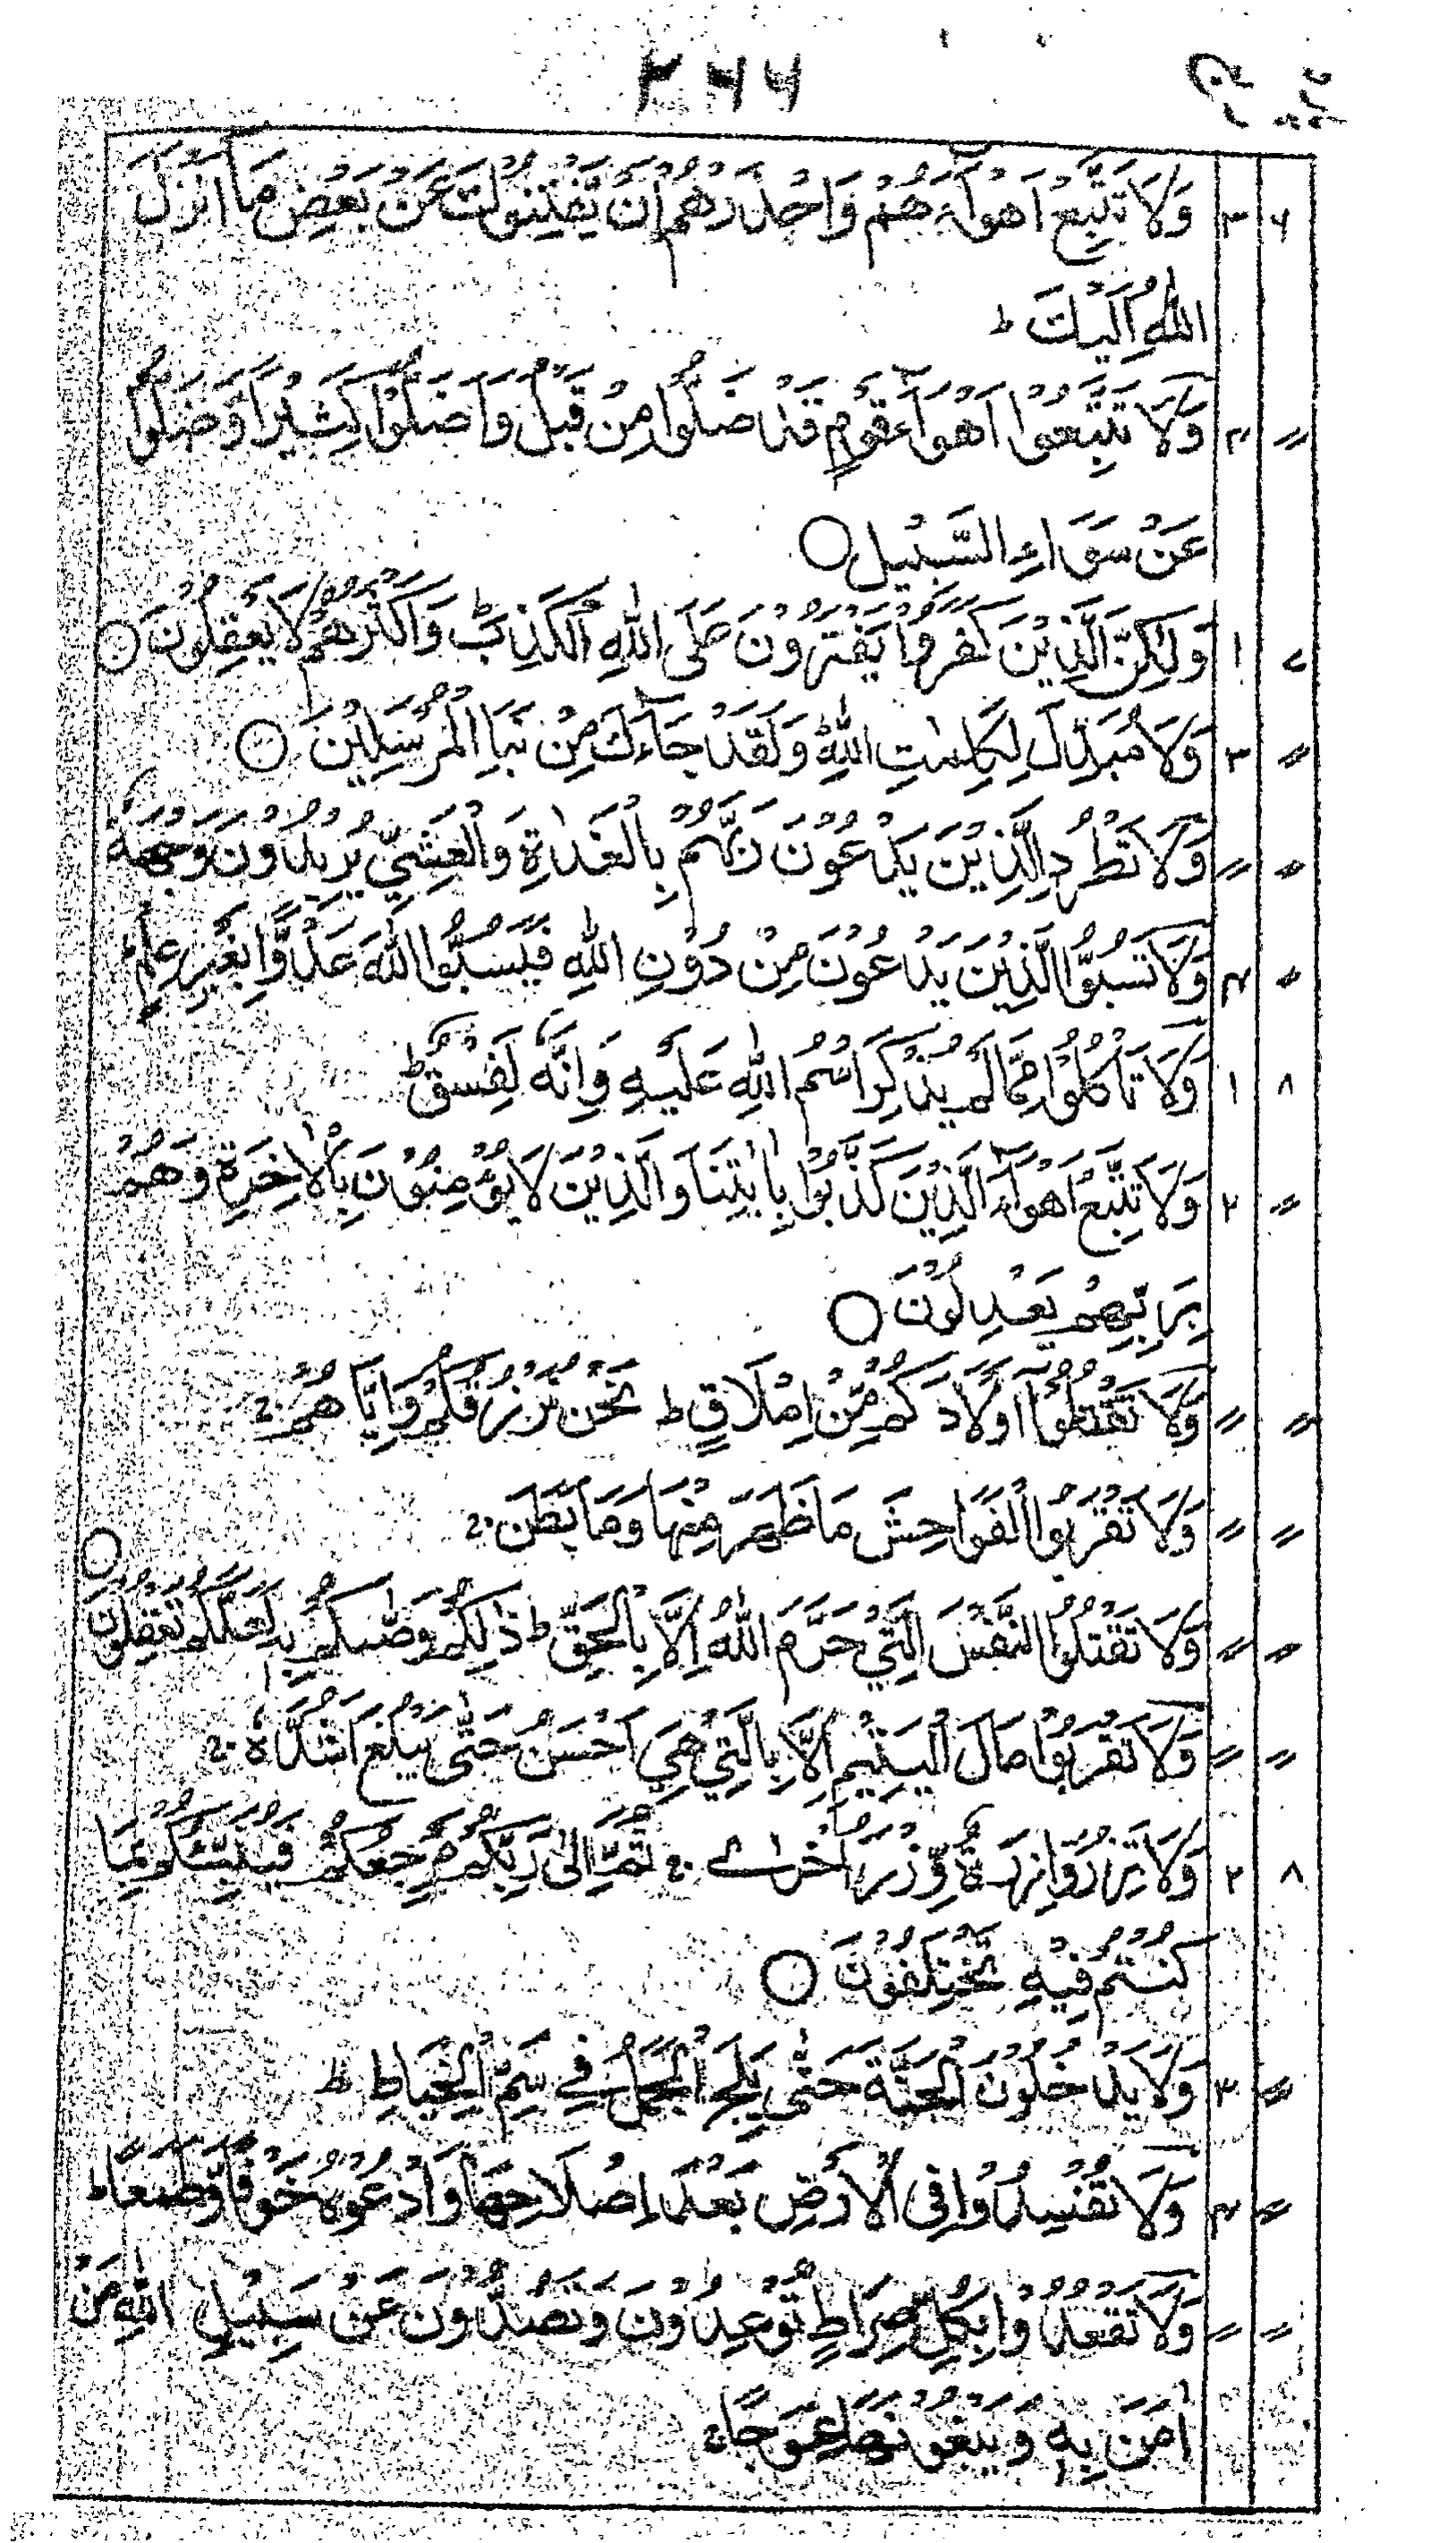 ۲۶۶
۶ ۳ وَلَا تَتَّبِعْ اَهْوَآءَهُمْ وَاحْذَرْهُمْ اَنْ يَّفْتِنُوْكَ عَنْ بَعْضِ مَا اَنْزَلَ
اللّٰهُ اِلَيْكَ ط
〃 ۳ وَلَا تَتَّبِعُوْا اَهْوَآءَ قَوْمٍ قَدْ ضَلُّوْا مِنْ قَبْلُ وَاَضَلُّوْا كَثِيْرًا وَّضَلُّوْا
عَنْ سَوَآءِ السَّبِيْلِ ○
۷ ۱ وَلٰكِنَّ الَّذِيْنَ كَفَرُوْا يَفْتَرُوْنَ عَلَى اللّٰهِ الْكَذِبَ ط وَاَكْثَرُهُمْ لَا يَعْقِلُوْنَ ○
〃 ۳ وَلَا مُبَدِّلَ لِكَلِمٰتِ اللّٰهِ ج وَلَقَدْ جَآءَكَ مِنْ نَّبَاِ الْمُرْسَلِيْنَ ○
〃 〃 وَلَا تَطْرُدِ الَّذِيْنَ يَدْعُوْنَ رَبَّهُمْ بِالْغَدٰوةِ وَالْعَشِيِّ يُرِيْدُوْنَ وَجْهَهٗ ط
〃 ۴ وَلَا تَسُبُّوا الَّذِيْنَ يَدْعُوْنَ مِنْ دُوْنِ اللّٰهِ فَيَسُبُّوا اللّٰهَ عَدْوًا بِغَيْرِ عِلْمٍ ط
۸ ۱ وَلَا تَاْكُلُوْا مِمَّا لَمْ يُذْكَرِ اسْمُ اللّٰهِ عَلَيْهِ وَاِنَّهٗ لَفِسْقٌ ط
〃 ۲ وَلَا تَتَّبِعْ اَهْوَآءَ الَّذِيْنَ كَذَّبُوْا بِاٰيٰتِنَا وَالَّذِيْنَ لَا يُؤْمِنُوْنَ بِالْاٰخِرَةِ وَهُمْ
بِرَبِّهِمْ يَعْدِلُوْنَ ○
〃 〃 وَلَا تَقْتُلُوْٓا اَوْلَادَكُمْ مِّنْ اِمْلَاقٍ ط نَحْنُ نَرْزُقُكُمْ وَاِيَّاهُمْ ج
〃 〃 وَلَا تَقْرَبُوا الْفَوَاحِشَ مَا ظَهَرَ مِنْهَا وَمَا بَطَنَ ج
〃 〃 وَلَا تَقْتُلُوا النَّفْسَ الَّتِيْ حَرَّمَ اللّٰهُ اِلَّا بِالْحَقِّ ط ذٰلِكُمْ وَصّٰىكُمْ بِهٖ لَعَلَّكُمْ تَعْقِلُوْنَ ○
〃 〃 وَلَا تَقْرَبُوْا مَالَ الْيَتِيْمِ اِلَّا بِالَّتِيْ هِيَ اَحْسَنُ حَتّٰى يَبْلُغَ اَشُدَّهٗ ج
۸ ۲ وَلَا تَزِرُ وَازِرَةٌ وِّزْرَ اُخْرٰى ج ثُمَّ اِلٰى رَبِّكُمْ مَّرْجِعُكُمْ فَيُنَبِّئُكُمْ بِمَا
كُنْتُمْ فِيْهِ تَخْتَلِفُوْنَ ○
〃 ۳ وَلَا يَدْخُلُوْنَ الْجَنَّةَ حَتّٰى يَلِجَ الْجَمَلُ فِيْ سَمِّ الْخِيَاطِ ط
〃 ۴ وَلَا تُفْسِدُوْا فِى الْاَرْضِ بَعْدَ اِصْلَاحِهَا وَادْعُوْهُ خَوْفًا وَّطَمَعًا ط
〃 〃 وَلَا تَقْعُدُوْا بِكُلِّ صِرَاطٍ تُوْعِدُوْنَ وَتَصُدُّوْنَ عَنْ سَبِيْلِ اللّٰهِ مَنْ
اٰمَنَ بِهٖ وَتَبْغُوْنَهَا عِوَجًا ج